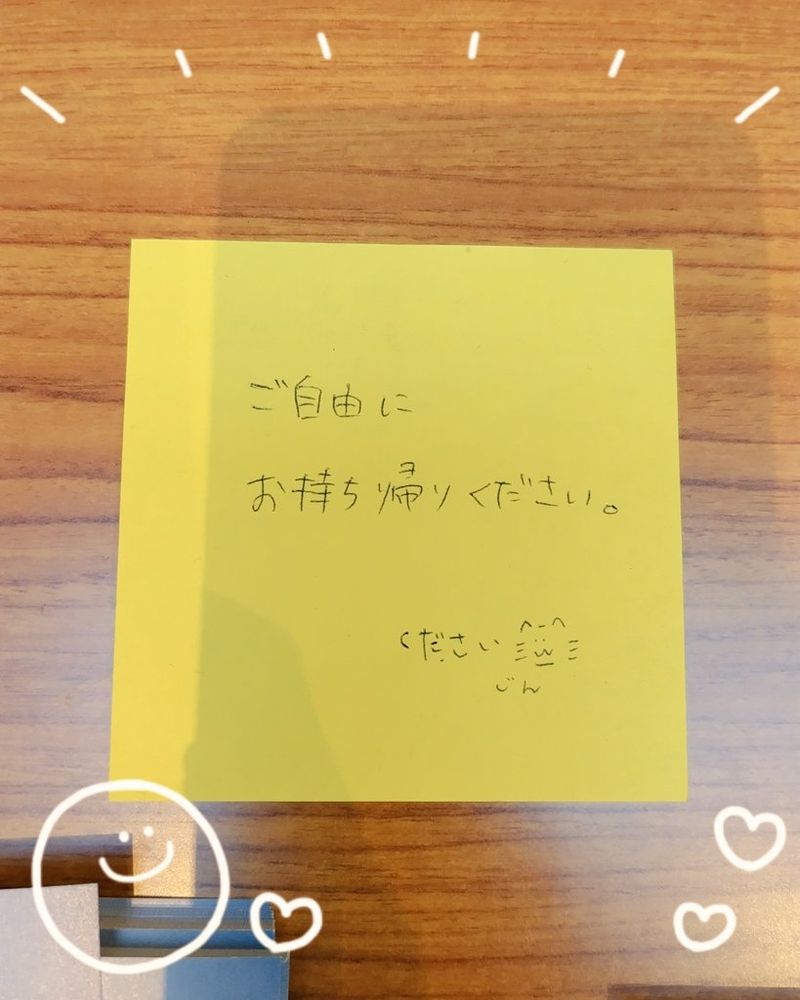 ご自由に
お持ち帰りください。
ください
じん